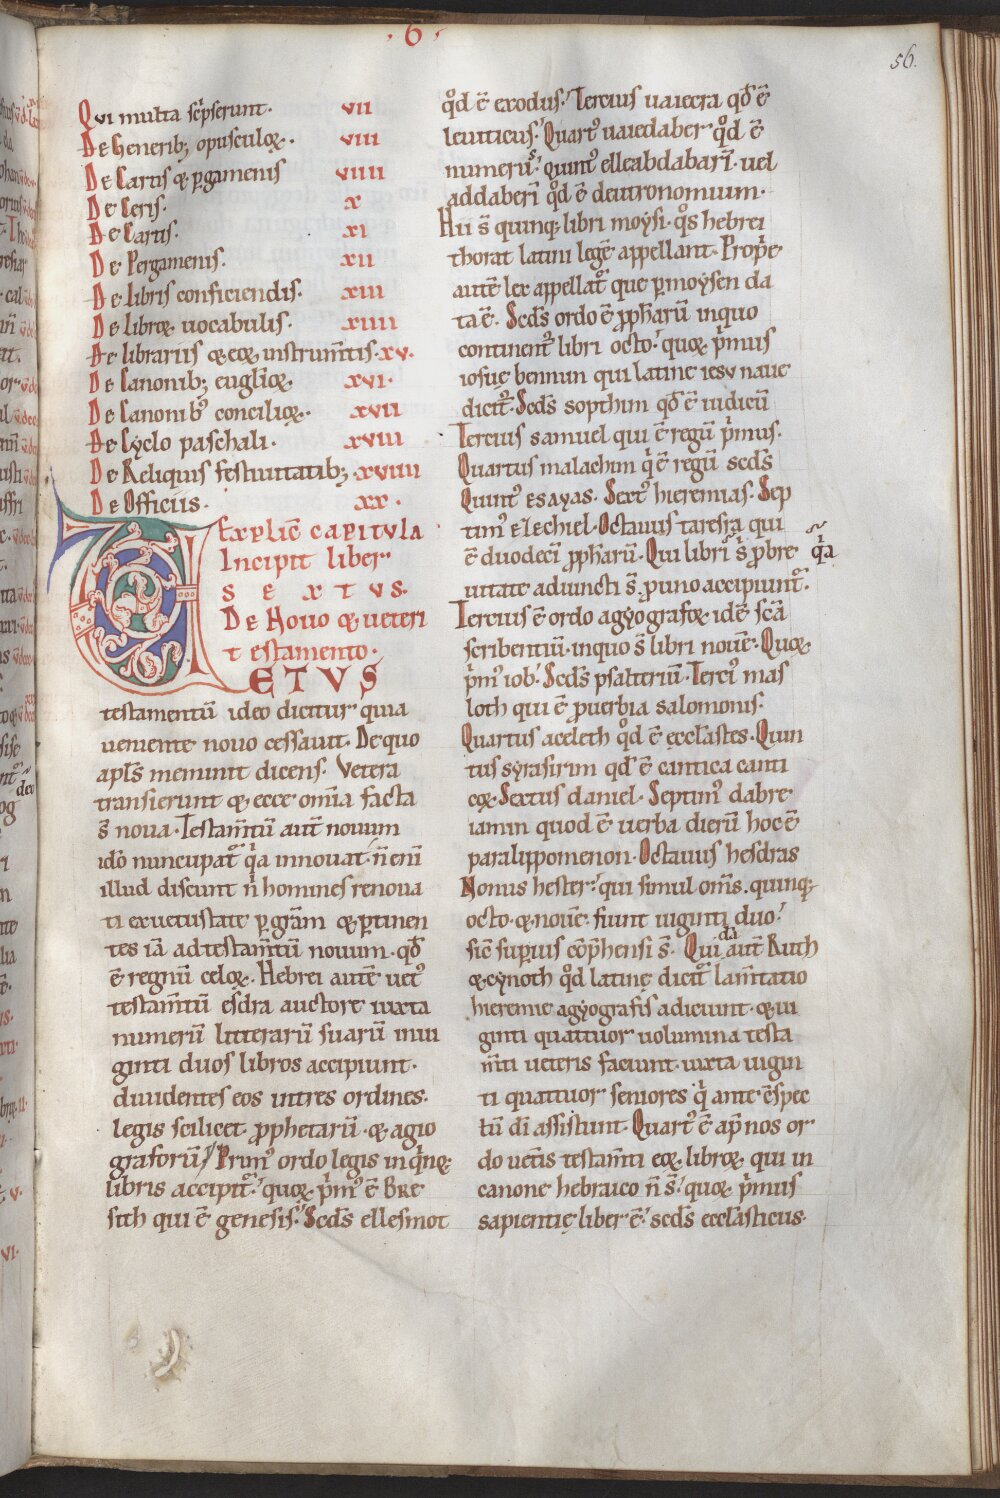 · 6 ·
56.
Qvi multa sc̄pserunt. vii
De Generib; opusculoꝝ. viii
De Cartis & ꝑgamenis viiii
De Ceris. x
De Cartis. xi
De Pergamenis. xii
De libris conficiendis. xiii
De libroꝝ uocabulis. xiiii
De librariis & eoꝝ instrum̄tis. xv.
De Canonib; eugl̄ioꝝ. xvi.
De Canonib; concilioꝝ. xvii
De Cyclo paschali. xviii
De Reliquis festiuitatib; xviiii
De Officiis. xx.
Explic̄ capitula
Incipit liber
s e x t vs.
De Nouo & ueteri
t estamento.
VETVS
testamentū ideo dicitur quia
ueniente nouo cessauit. De quo
apl̄s meminit dicens. Vetera
transierunt & ecce om̄ia facta
s̄ noua. Testam̄tū aut̄ nouum
ido nuncupat᷑ qͥa innouat. n̄ eni̅
illud discunt n̄ homines renoua
ti ex uetustate ꝑ gr̄am & ꝑtinen
tes iā ad testam̄tū nouum. qd̄
ē regnū celoꝝ. Hebrei autē uet᷒
testam̄tū esdra auctore iuxta
numerū litterarū suarū uiui
ginti duos libros accipiunt.
diuidentes eos in tres ordines.
legis scilicet. ꝓphetarū. & agio
graforū. Prim᷒ ordo legis in qͥnq;
libris accipit᷑. quoꝝ pͥm᷒ ē Bre
sith qui ē genesis. Scd̄s ellesmot
qͦd ē exodus. Tercius uaiecra qd̄ ē
leuiticus. Quart᷒ uaiedaber qͦd ē
numerus. quint᷒ elleabdabari̅. uel
addaberi̅ qͦd ē deutronomium.
Hii s̄ quinq; libri moysi. qͦs hebrei
thorat latini legē appellant. Proprͥe
autē lex appellat᷑ que ꝑ moysen da
ta ē. Scd̄s ordo ē ꝓph̄arū in quo
continent᷑ libri octo. quoꝝ pͥmus
iosuę bennun qui latine iesv naue
dicit᷑. Scd̄s sopthim qd̄ ē iudicū
Tercius samuel qui ē regū pͥmus.
Quartus malachim qͥ ē regū scd̄s
Quint᷒ esayas. Sext᷒ hieremias. Sep
tim᷒ ezechiel. Octauus taresra qui
ē duodeci̅ ꝓph̄arū. Qui libri s̄ ꝓ bre
qͥa
uitate adiuncti s̄. ꝓ uno accipiunt᷑.
Tercius ē ordo agyografoꝝ. idē sc̄a
scribentiū. in quo s̄ libri nouē. Quoꝝ
pͥm᷒ iob. Scd̄s psalteriū. Terci᷒ mas
loth qui ē ꝓuerbia salomonis.
Quartus aceleth qͦd ē eccl̄astes. Quin
tus syrasirim qd̄ ē cantica canti
coꝝ. Sextus daniel. Septim᷒ dabre
iamin quod ē uerba dierū hoc ē
paralippomenon. Octauus hesdras
Nonus hester. qui simul om̄s. quinq;
octo. & nouē. fiunt uiginti duo.
sic̄ suꝑius cōphensi s̄. Quidā aut̄ Ruth
& cynoth qͦd latinę dicit᷑ lam̄tatio
hieremie agyografis adiciunt. & ui
ginti quattuor uolumina testa
m̄ti ueteris faciunt. iuxta uigin
ti quattuor seniores qͥ ante c̄spec
tū di̅ assistunt. Quart᷒ ē ap̄ nos or
do uet̄is testam̄ti eoꝝ libroꝝ qui in
canone hebraico n̄ s̄. quoꝝ pͥmus
sapientię liber ē. scd̄s eccl̄asticus.